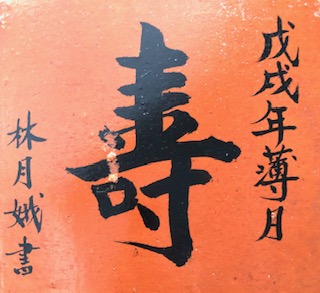 戊戌年薄月
壽
林月娥書